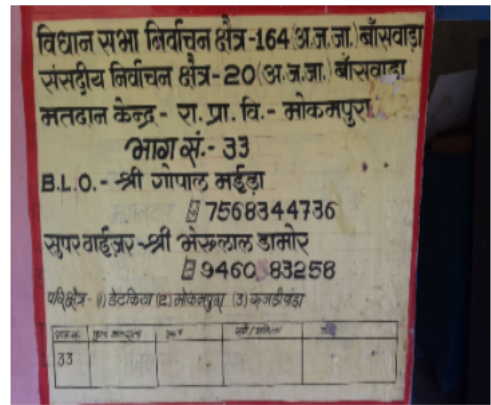 विधान सभा निर्वाचन क्षैत्र-164(अ.ज.जा.) बाँसवाड़ा
संसदीय निर्वाचन क्षैत्र-20(अ.ज.जा.) बाँसवाडा
मतदान केन्द्र- रा.प्रा.वि.- मोकमपुरा
भाग सं.- 33
B.L.O.- श्री गोपाल मईड़ा
7568344736
सुपरवाईज़र-श्री डामोर
9460 83258
परिक्षैत्र- (1) डेटकिया (2) मोकमपुरा (3)
33